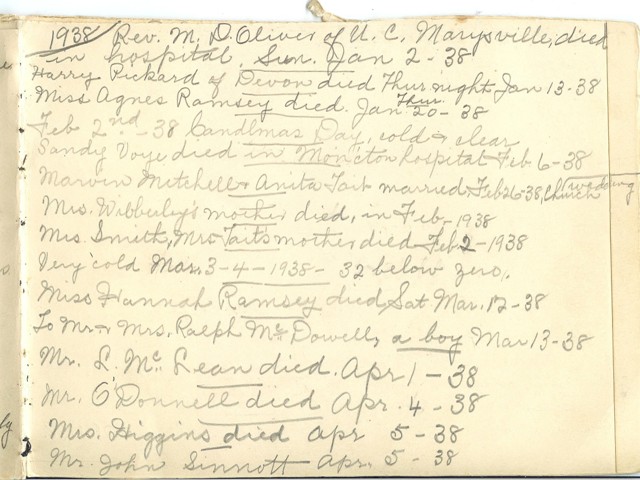 1938 Rev. M. D. Oliver of U. C. Marysville, died
in hospital, Sun. Jan 2 - 38
Harry Pickard of Devon died Thur. night Jan 13 - 38
Miss Agnes Ramsey died. Jan Thur. 20 - 38
Feb 2nd - 38 Candlmas Day, cold & clear
Sandy Voye died in Moncton hospital Feb 6 - 38
Marvin Metchell & Anita Tait married Feb 26 - 38, Church wedding
Mrs. Wibberly's mother died, in Feb, - 1938
Mrs. Smith, Mrs Tait's mother died Feb 2 - 1938
Very cold Mar. 3 - 4 - 1938 - 32 below zero,
Miss Hannah Ramsey died, Sat Mar. 12 - 38
To Mr. & Mrs. Ralph McDowell, a boy Mar 13 - 38
Mr. L. McLean died. Apr 1 - 38
Mr. O'Donnell died Apr. 4 - 38
Mrs. Higgins died Apr 5 - 38
Mr. John Sinnott Apr. 5 - 38
ly